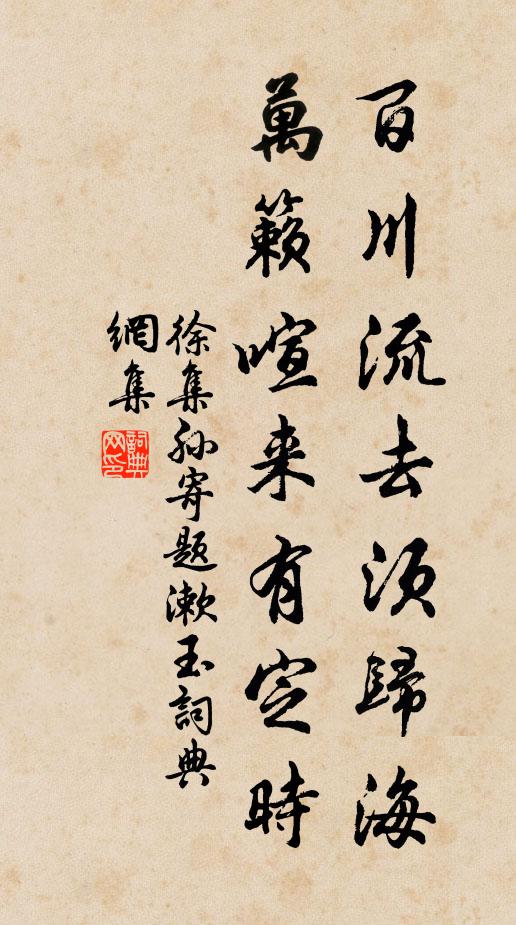 百川流去須歸海
萬籟喧来有定時
徐集孙寄題漱玉詞典
網集
詞典网印